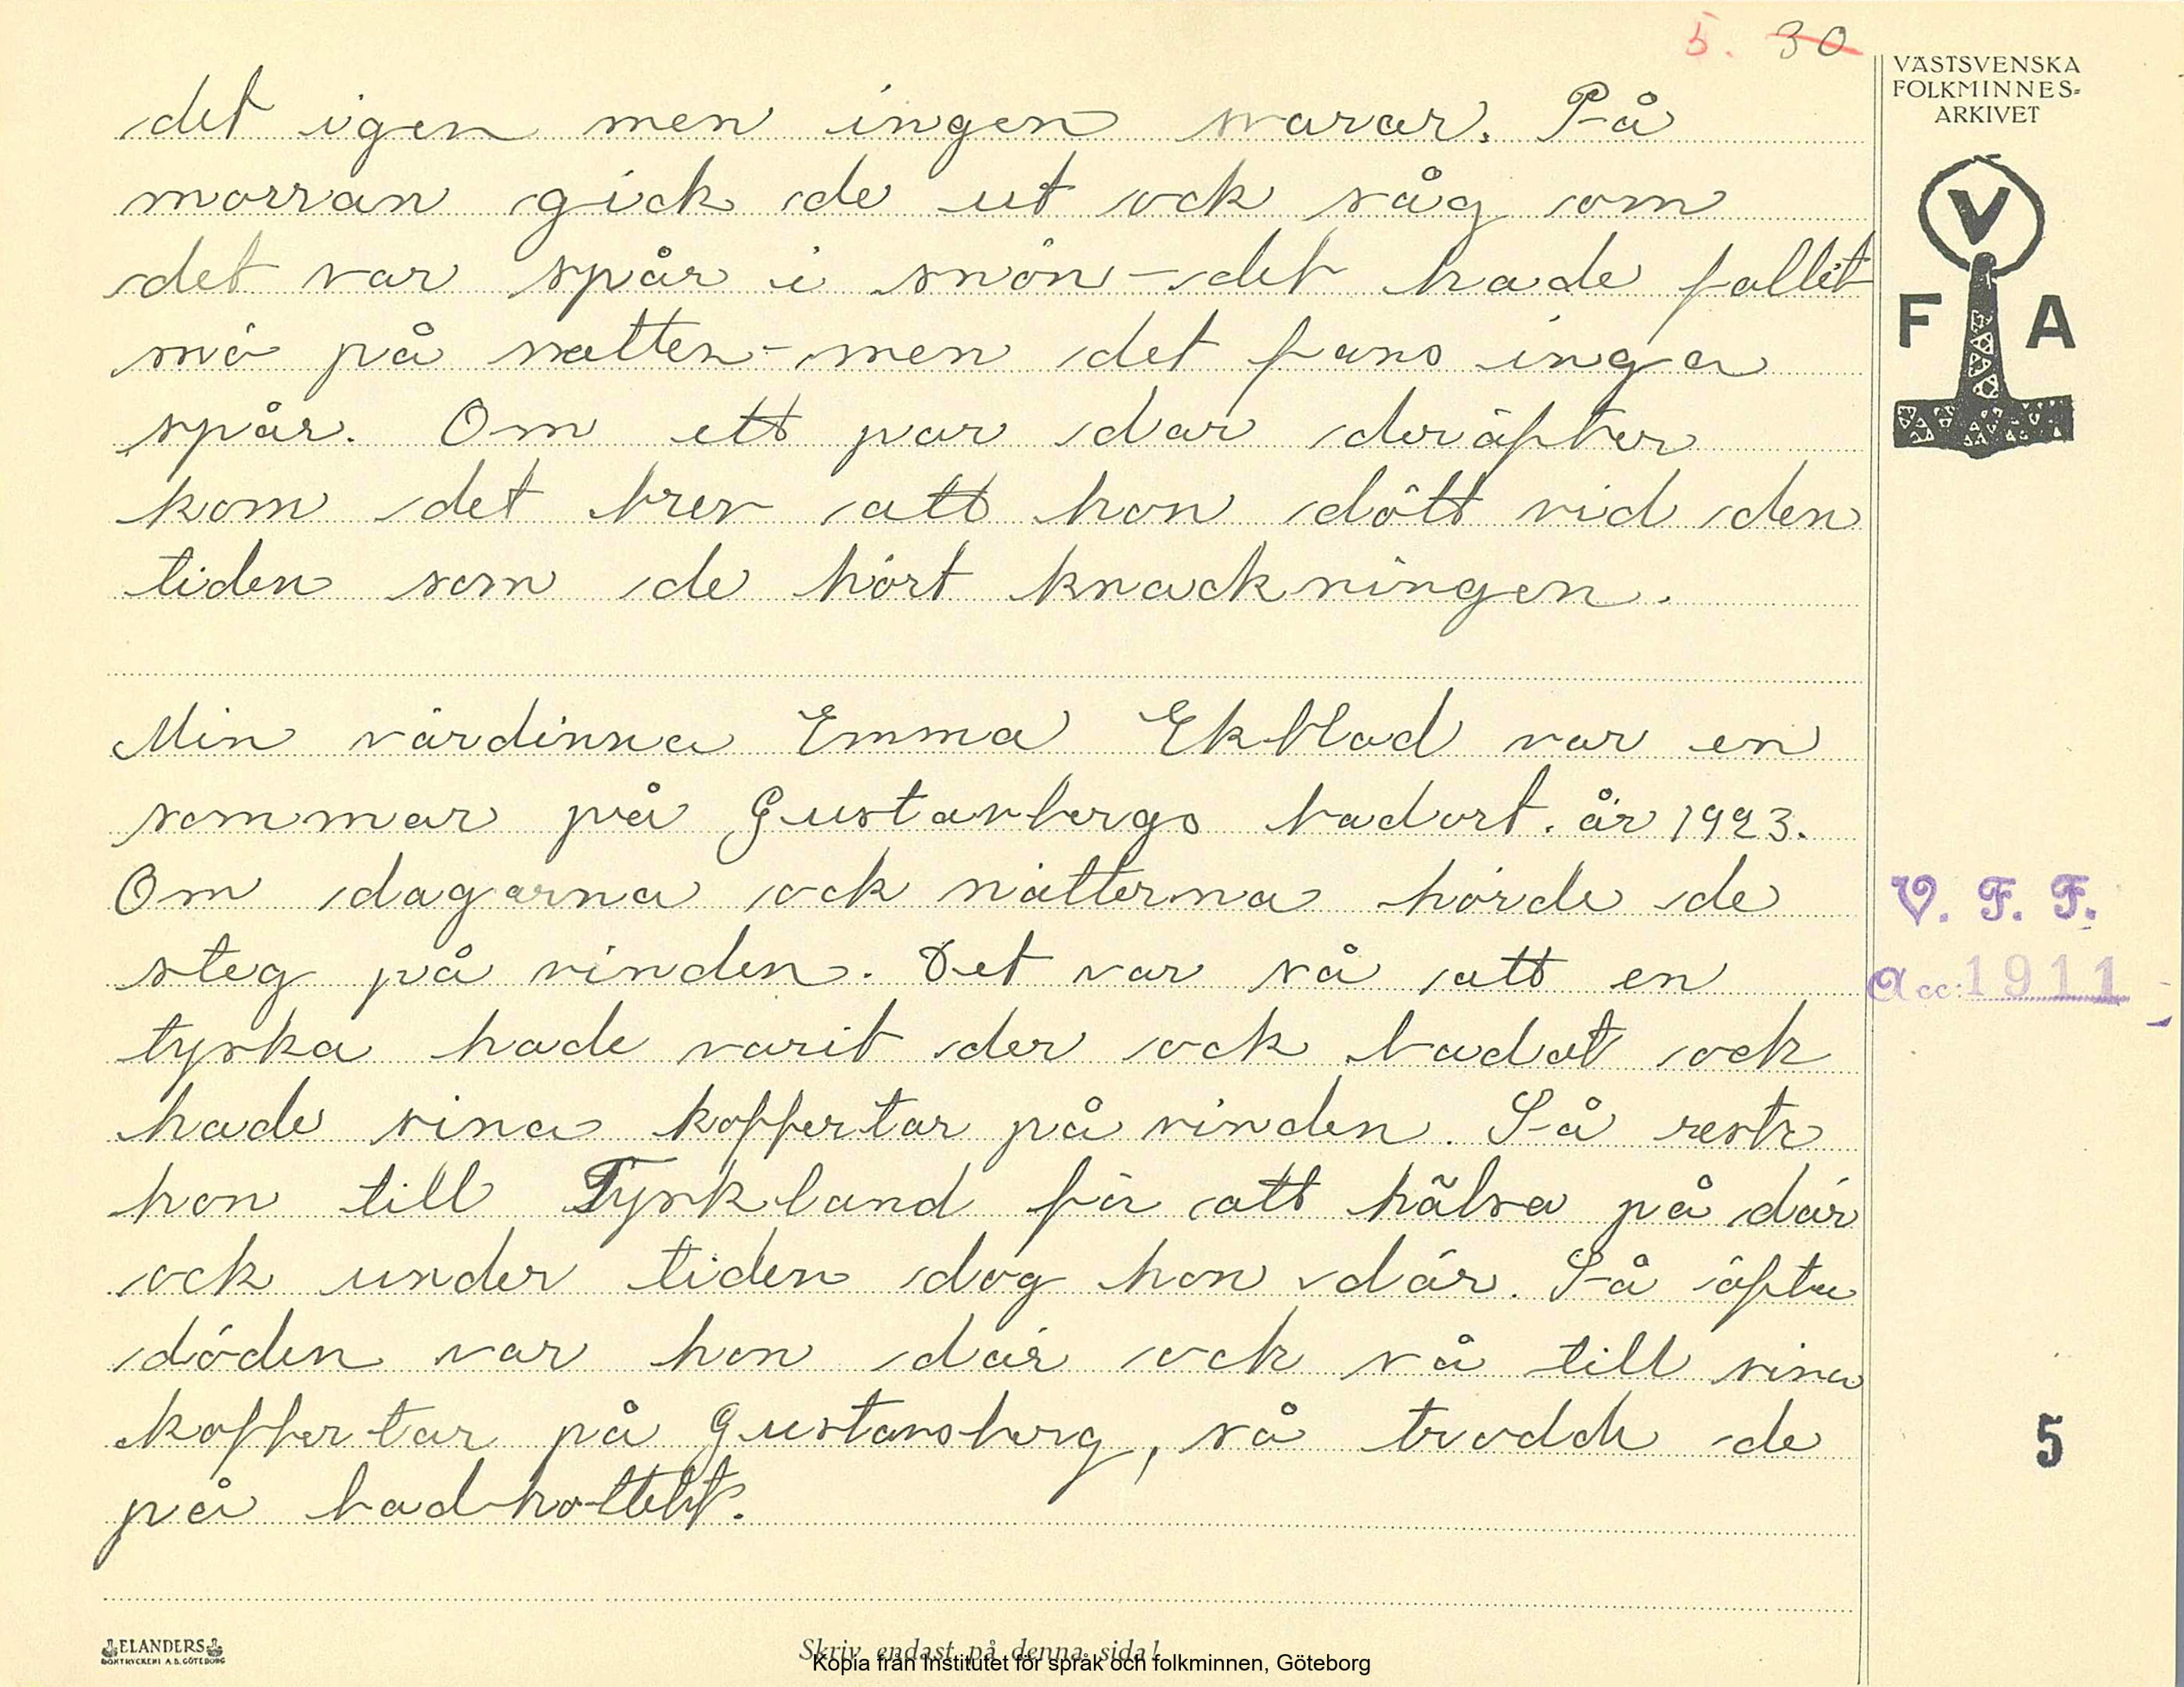 5. 30
VÄSTSVENSKA
FOLKMINNES-
ARKIVET
V
F A
det igen men ingen svarar. På
morran gick de ut ock såg om
det var spår i snön - det hade fallit
snö på natten - men det fans inga
spår. Om ett par dar deräfter
kom det brev att hon dött vid den
tiden som de hört knackningen.
Min värdinna Emma Ekblad var en
sommar på Gustavbergs badort. år 1923.
Om dagarna ock nätterna hörde de
steg på vinden. Det var så att en
tyska hade varit der ock badat ock
hade sina koffertar på vinden. Så reste
hon till Tyskland för att hälsa på där
ock under tiden dog hon där. Så äfter
döden var hon där ock så till sina
koffertar på Gustavsberg, så trodde de
på badhottelt.
V. F. F.
Acc: 1911
5
ELANDERS
BOKTRYCKERI A.B. GÖTEBORG
Skriv endast på denna sida!
Kopia från Institutet för språk och folkminnen, Göteborg